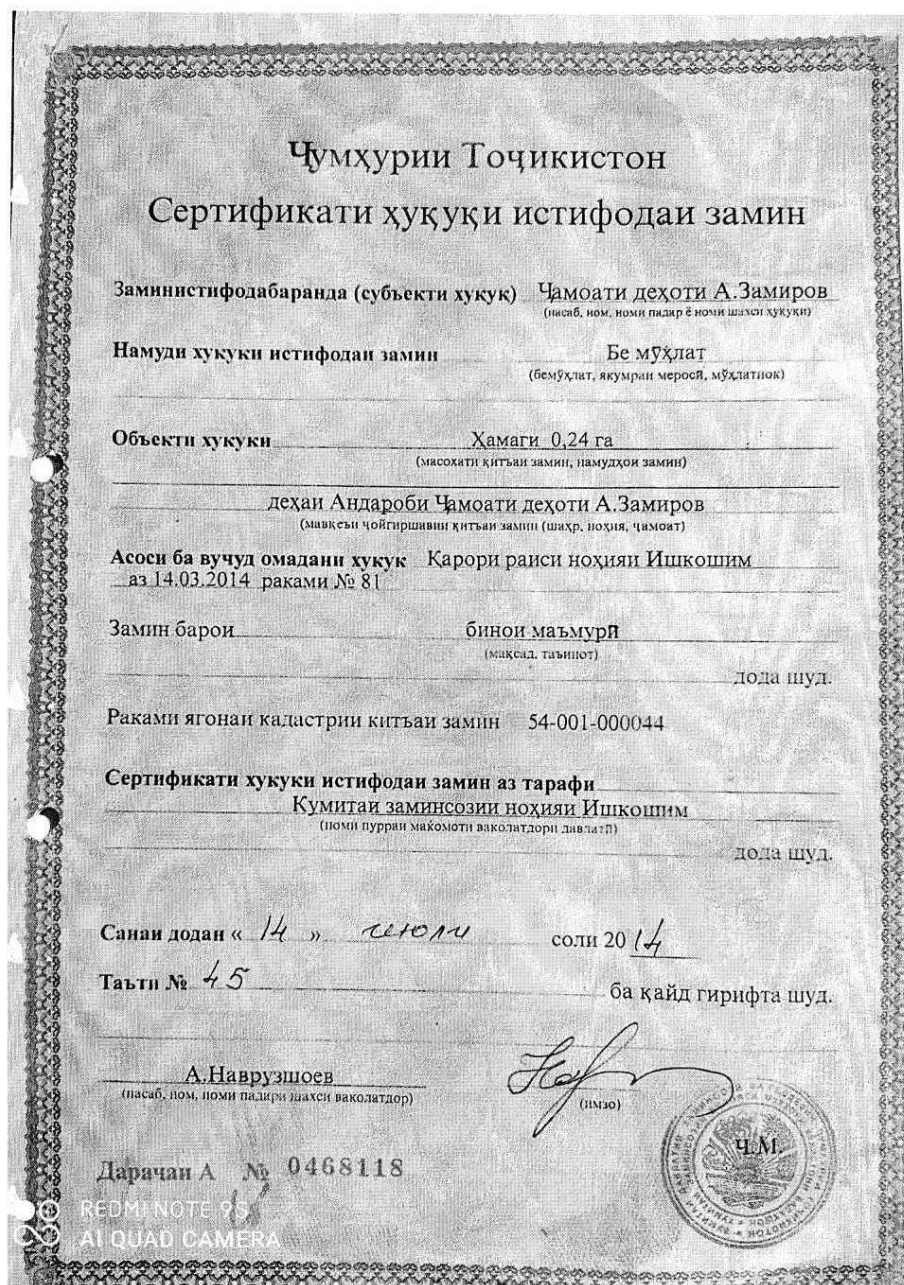 Ҷумҳурии Тоҷикистон
Сертификати ҳуқуқи истифодаи замин
Заминистифодабаранда (субъекти хукук) Ҷамоати деҳоти А.Замиров
(насаб, ном, номи падар ё номи шахси ҳуқуқи)
Намуди хукуки истифодаи замин Бе мӯҳлат
(бемӯҳлат, якумраи меросӣ, мӯҳлатнок)
Объекти хукуки Ҳамаги 0,24 га
(масоҳати қитъаи замин, намудҳои замин)
деҳаи Андароби Ҷамоати деҳоти А.Замиров
(мавқеъи ҷойгиршавии қитъаи замин (шаҳр, ноҳия, ҷамоат)
Асоси ба вучуд омадани хукук Қарори раиси ноҳияи Ишкошим
аз 14.03.2014 раками № 81
Замин барои бинои маъмурӣ
(мақсад, таъинот)
дода шуд.
Раками ягонаи кадастрии китъаи замин 54-001-000044
Сертификати хукуки истифодаи замин аз тарафи
Кумитаи заминсозии ноҳияи Ишкошим
(номи пурраи макомоти ваколатдори давлатӣ)
дода шуд.
Санаи додан « 14 » июли соли 2014
Таъти № 45 ба қайд гирифта шуд.
А.Наврузшоев
(насаб, ном, номи падари шахси ваколатдор)
(имзо)
Ҷ.М.
Дарачаи А № 0468118
REDMI NOTE 9S
AI QUAD CAMERA